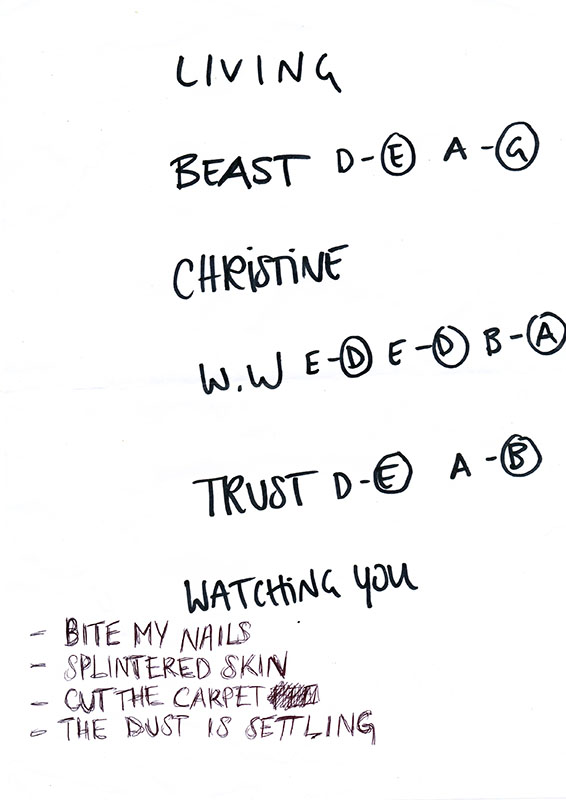 LIVING
BEAST D-E A-G
CHRISTINE
W.W E-D E-D B-A
TRUST D-E A-B
WATCHING YOU
- BITE MY NAILS
- SPLINTERED SKIN
- CUT THE CARPET
- THE DUST IS SETTLING